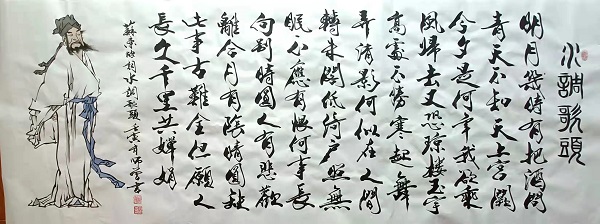 水調歌頭
明月幾時有把酒問
青天不知天上宮闕
今夕是何年我欲乘
風歸去又恐瓊樓玉宇
高處不勝寒起舞
弄清影何似在人間
轉朱閣低綺户照無
眠不應有恨何事長
向別時圓人有悲歡
離合月有陰晴圓缺
此事古難全但願人
長久千里共嬋娟
蘇東坡詞水調歌頭